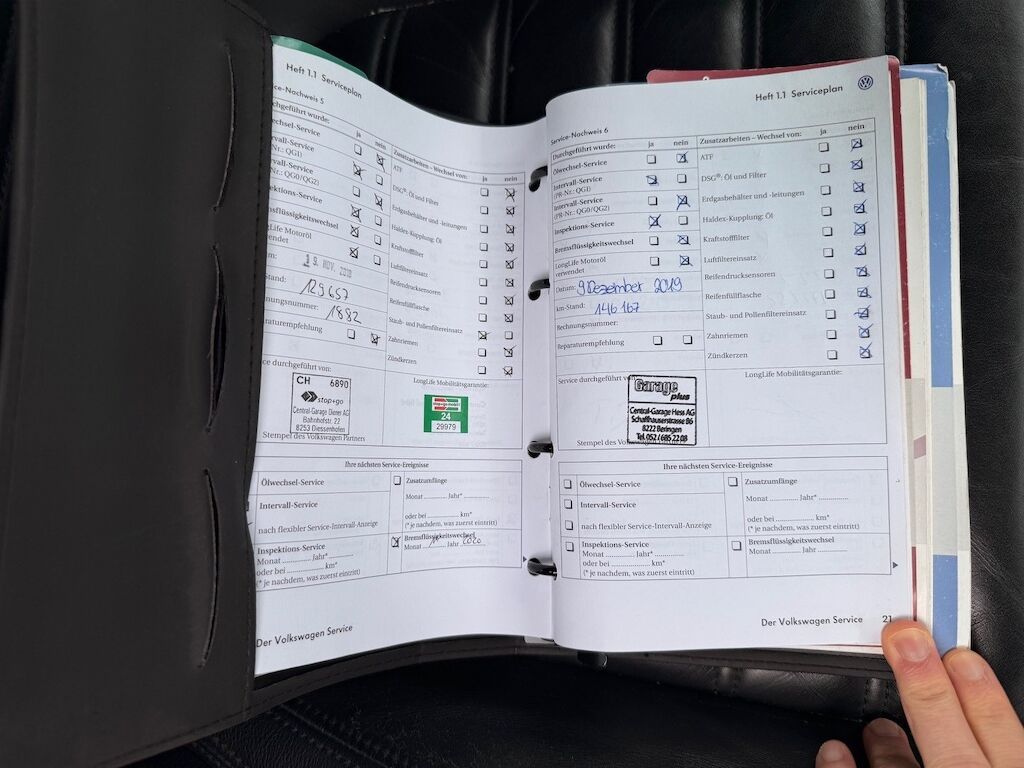 Heft 1.1 Serviceplan
ce-Nachweis 5
chgeführt wurde: ja nein
echsel-Service
rvall-Service
-Nr.: QG1)
rvall-Service
-Nr.: QG0/QG2)
pektions-Service
msflüssigkeitswechsel
ngLife Motoröl
wendet
m: 9. NOV. 2018
Stand: 129657
hnungsnummer: 1882
araturempfehlung
Zusatzarbeiten – Wechsel von: ja nein
ATF
DSG®: Öl und Filter
Erdgasbehälter und -leitungen
Haldex-Kupplung: Öl
Kraftstofffilter
Luftfiltereinsatz
Reifendrucksensoren
Reifenfüllflasche
Staub- und Pollenfiltereinsatz
Zahnriemen
Zündkerzen
ce durchgeführt von:
CH 6890
stop+go
Central-Garage Diener AG
Bahnhofstr. 22
8253 Diessenhofen
Stempel des Volkswagen Partners
LongLife Mobilitätsgarantie:
stop+go mobil
24
29979
Ihre nächsten Service-Ereignisse
Ölwechsel-Service
Intervall-Service
nach flexibler Service-Intervall-Anzeige
Inspektions-Service
Monat ............ Jahr* ..............
oder bei .................... km*
(* je nachdem, was zuerst eintritt)
Zusatzumfänge
Monat ............ Jahr* ..............
oder bei .................... km*
(* je nachdem, was zuerst eintritt)
Bremsflüssigkeitswechsel
Monat 11 Jahr 2020
Der Volkswagen Service
Heft 1.1 Serviceplan
Service-Nachweis 6
Durchgeführt wurde: ja nein
Ölwechsel-Service
Intervall-Service
(PR-Nr.: QG1)
Intervall-Service
(PR-Nr.: QG0/QG2)
Inspektions-Service
Bremsflüssigkeitswechsel
LongLife Motoröl
verwendet
Datum: 9 Dezember 2019
km-Stand: 146 167
Rechnungsnummer:
Reparaturempfehlung
Zusatzarbeiten – Wechsel von: ja nein
ATF
DSG®: Öl und Filter
Erdgasbehälter und -leitungen
Haldex-Kupplung: Öl
Kraftstofffilter
Luftfiltereinsatz
Reifendrucksensoren
Reifenfüllflasche
Staub- und Pollenfiltereinsatz
Zahnriemen
Zündkerzen
Service durchgeführt von
Garage
plus
Central-Garage Hess AG
Schaffhauserstrasse 86
8222 Beringen
Tel. 052 / 685 22 08
Stempel des Vo
LongLife Mobilitätsgarantie:
Ihre nächsten Service-Ereignisse
Ölwechsel-Service
Intervall-Service
nach flexibler Service-Intervall-Anzeige
Inspektions-Service
Monat ............ Jahr* ..............
oder bei .................... km*
(* je nachdem, was zuerst eintritt)
Zusatzumfänge
Monat ............ Jahr* ..............
oder bei .................... km*
(* je nachdem, was zuerst eintritt)
Bremsflüssigkeitswechsel
Monat ............ Jahr ..............
Der Volkswagen Service 21